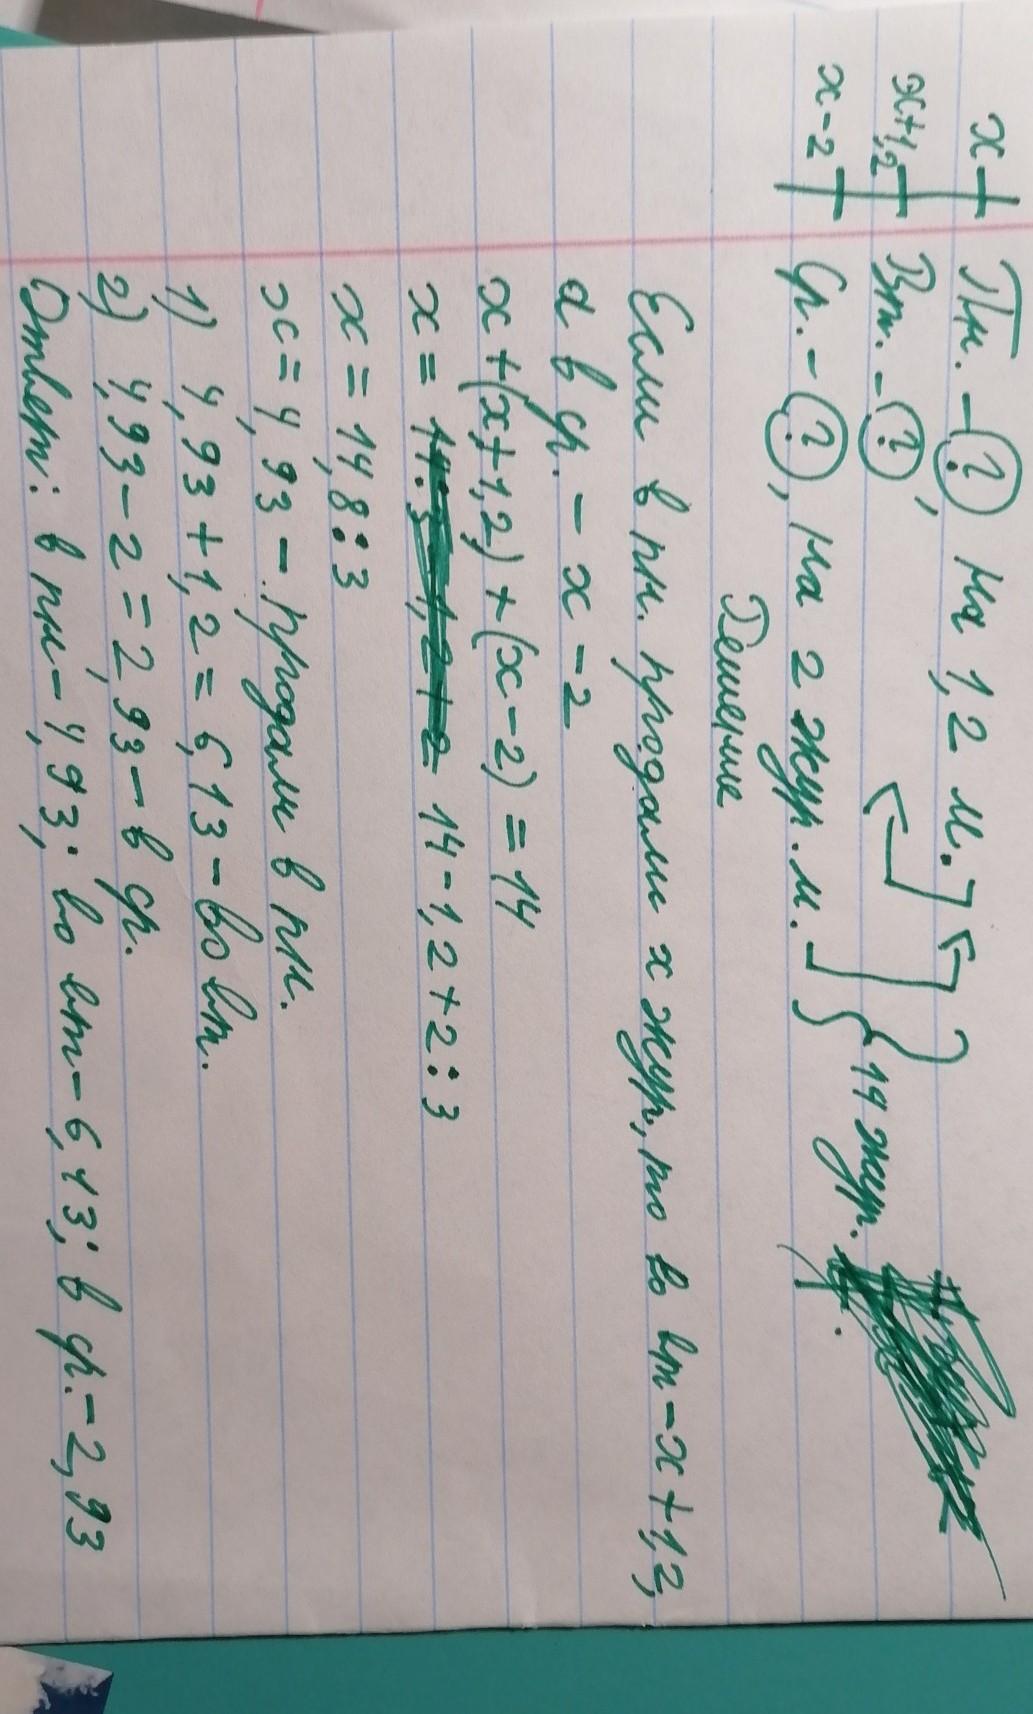 x Пн. - ?, на 1,2 м.
x+1,2 Вт. - ?
x-2 Ср. - ?, на 2 жур. м. } 14 жур.
Решение
Если в пн. продали x жур, то во вт - x + 1,2,
а в ср. - x - 2
x + (x + 1,2) + (x - 2) = 14
x = 14 - 1,2 + 2 : 3
x = 14,8 : 3
x = 4,93 - продали в пн.
1) 4,93 + 1,2 = 6,13 - во вт.
2) 4,93 - 2 = 2,93 - в ср.
Ответ: в пн - 4,93; во вт - 6,13; в ср. - 2,93